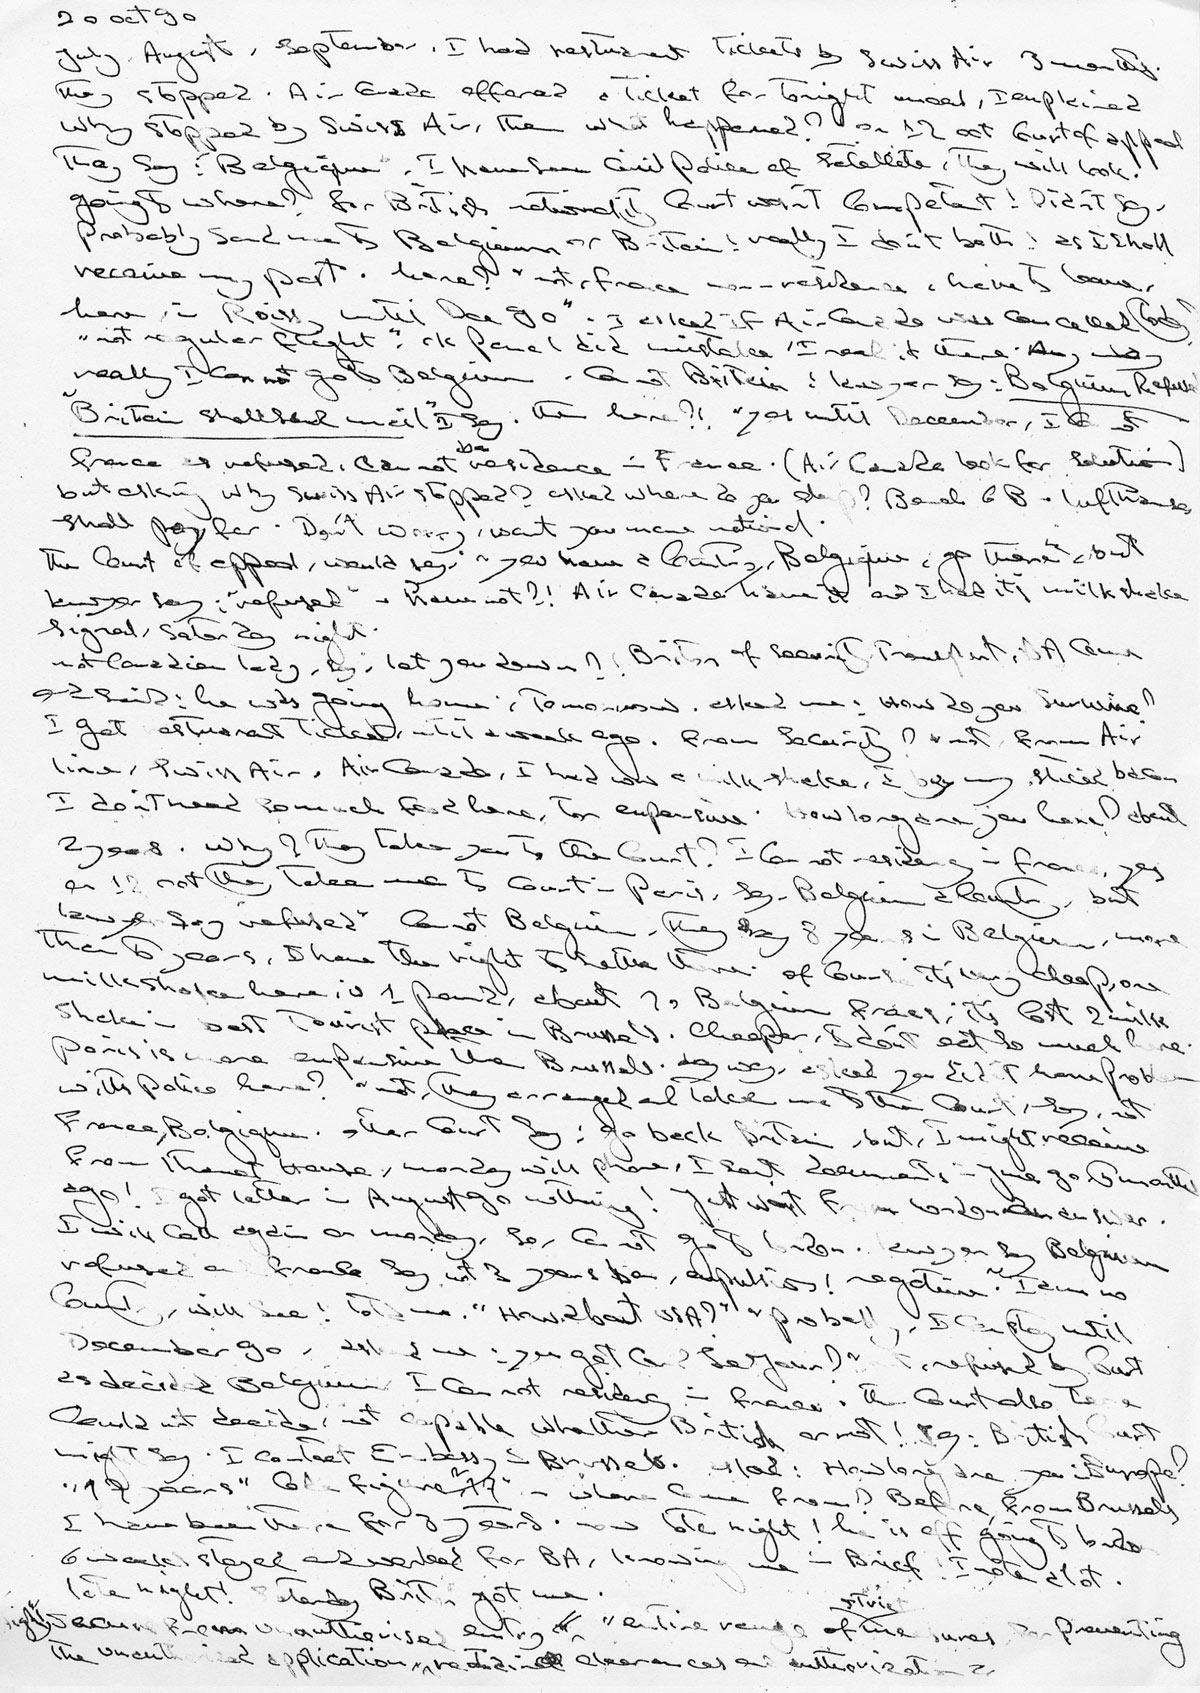 20 oct 90
July, August, September, I had resturant Tickets by Swiss Air 3 months.
They stopped. Air Canada offered a Ticket for tonight meal, I explained
why stopped by Swiss Air, then what happened? on 12 oct Court of appeal
They say: "Belgique", I have seen Civil Police at Satellite, They will look.
going to where? for British nationality Court wasn't Competent! Didn't say,
Probably Send me to Belgium or Britain! really I don't both! as I shall
receive my part. here? "not, France non-residence, have to leave,
here, in Roissy until Dec 90". I asked if Air Canada was Cancelled (lady)
"not regular flight": ok Panel did mistake! I read it there. Any way
really I Can not go to Belgium. Can not Britain! lawyer say: Belgium Refused
"Britain shall send mail" I say. then here?! "yes until December, I
France as refused, Can not be residence in France. (Air Canada look for Solution)
but asking why Swiss Air stopped? asked where do you sleep? Bench 6 B. Lufthansa
shall pay for. Don't worry, want you
The Court of appeal, would say: "you have a Country, Belgique, go there", but
lawyer say: "refused". Have not?! Air Canada have it and I had its milkshake
Signed, Saturday night.
not Canadian lady, say, let you down?! Briton of Security Transport, BA Came
and Said: he was going home, Tomorrow. asked me: How do you Survive?
I get resturant Ticket, until a week ago. From Security? "not, from Air
line, Swiss Air, Air Canada, I had one a milkshake, I buy my sliced bacon
I don't need so much food here, too expensive. How long are you here? about
2 years. Why? They take you to the Court? I Can not residency in France, yes
on 12 oct They Take me to Court in Paris, Say Belgium a Country, but
lawyer Say "refused" Can not Belgium, They say 8 years in Belgium, more
than 5 years, I have the right to settle there. of Course it's very cheap, one
milkshake here, is 1 pound, about 70 Belgium francs, it's Cost 2 milk
shake in best Tourist place in Brussels. Cheaper, I don't eat so much here.
Paris is more expensive than Brussels. any way, asked you didn't have problem
with Police here? "not, They arranged and Take me to the Court, Say, not
France, Belgique. other Court Say: go back Britain, but, I might receive
from Thanet House, monday will phone, I sent documents in June 90 5 months
ago! I got letter in August 90 nothing! Just want from London an answer.
I will Call again on monday, So, Can not go to London. lawyer Say Belgium
refused and France Say not 3 years ban, expulsion! negative. I am no
Country, will See! Told me. "How about USA?" "probably, I Can stay until
December 90, asked me: you got Cart Sejour? "not, refused by Court
as decided Belgium I Can not residency in France. The Court also here
Could not decide, not capable whether British or not! Say: British Court
might Say. I Contact Embassy in Brussels. asked: How long are you in Europe?
"17 years" figure "17" in where Come from? Before, from Brussels
I have been there for 8 years. now late night! he is off going to London
6 weeks stayed and worked for BA, knowing me in Brief! I note alot.
late night! Saturday Briton got me.
Secure From unauthorised entry "entire range of strict measures for preventing
the unauthorised application, clearances and authorizations